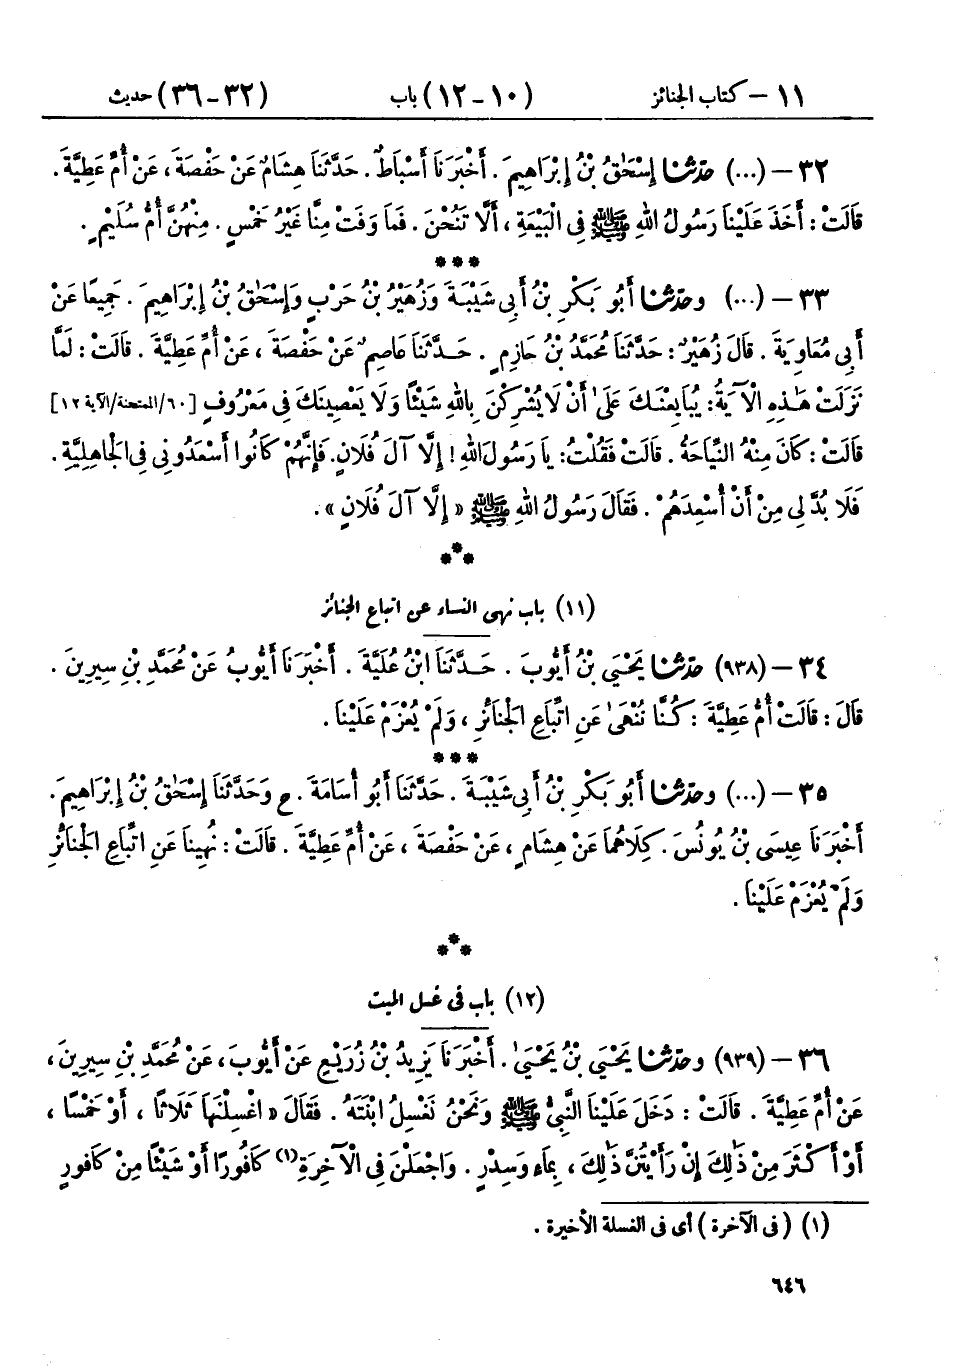 ١١ – كتاب الجنائز (١٠-١٢) باب (٣٢-٣٦) حديث
٣٢ – (...) حدّثنا إِسْحَٰقُ بْنُ إِبْرَاهِيمَ . أَخْبَرَنَا أَسْبَاطٌ . حَدَّثَنَا هِشَامٌ عَنْ حَفْصَةَ ، عَنْ أُمِّ عَطِيَّةَ .
قَالَتْ : أَخَذَ عَلَيْنَا رَسُولُ اللهِ ﷺ فِي الْبَيْعَةِ ، أَلَّا تَنُحْنَ . فَمَا وَفَتْ مِنَّا غَيْرُ خَمْسٍ . مِنْهُنَّ أُمُّ سُلَيْمٍ .
***
٣٣ – (...) وحدّثنا أَبُو بَكْرِ بْنُ أَبِي شَيْبَةَ وَزُهَيْرُ بْنُ حَرْبٍ وَإِسْحَٰقُ بْنُ إِبْرَاهِيمَ . جَمِيعًا عَنْ
أَبِي مُعَاوِيَةَ . قَالَ زُهَيْرٌ : حَدَّثَنَا مُحَمَّدُ بْنُ حَازِمٍ . حَدَّثَنَا عَاصِمٌ عَنْ حَفْصَةَ ، عَنْ أُمِّ عَطِيَّةَ . قَالَتْ : لَمَّا
نَزَلَتْ هَٰذِهِ الْآيَةُ : يُبَايِعْنَكَ عَلَىٰ أَنْ لَا يُشْرِكْنَ بِاللهِ شَيْئًا وَلَا يَعْصِينَكَ فِي مَعْرُوفٍ [٦٠/الممتحنة/الآية ١٢]
قَالَتْ : كَانَ مِنْهُ النِّيَاحَةُ . قَالَتْ فَقُلْتُ : يَا رَسُولَ اللهِ ! إِلَّا آلَ فُلَانٍ . فَإِنَّهُمْ كَانُوا أَسْعَدُونِي فِي الْجَاهِلِيَّةِ .
فَلَا بُدَّ لِي مِنْ أَنْ أُسْعِدَهُمْ . فَقَالَ رَسُولُ اللهِ ﷺ « إِلَّا آلَ فُلَانٍ » .
***
(١١) باب نهى النساء عن اتباع الجنائز
٣٤ – (٩٣٨) حدّثنا يَحْيَى بْنُ أَيُّوبَ . حَدَّثَنَا ابْنُ عُلَيَّةَ . أَخْبَرَنَا أَيُّوبُ عَنْ مُحَمَّدِ بْنِ سِيرِينَ .
قَالَ : قَالَتْ أُمُّ عَطِيَّةَ : كُنَّا نُنْهَىٰ عَنِ اتِّبَاعِ الْجَنَائِزِ ، وَلَمْ يُعْزَمْ عَلَيْنَا .
***
٣٥ – (...) وحدّثنا أَبُو بَكْرِ بْنُ أَبِي شَيْبَةَ . حَدَّثَنَا أَبُو أُسَامَةَ . ح وَحَدَّثَنَا إِسْحَٰقُ بْنُ إِبْرَاهِيمَ .
أَخْبَرَنَا عِيسَى بْنُ يُونُسَ . كِلَاهُمَا عَنْ هِشَامٍ ، عَنْ حَفْصَةَ ، عَنْ أُمِّ عَطِيَّةَ . قَالَتْ : نُهِينَا عَنِ اتِّبَاعِ الْجَنَائِزِ
وَلَمْ يُعْزَمْ عَلَيْنَا .
***
(١٢) باب فى غسل الميت
٣٦ – (٩٣٩) وحدّثنا يَحْيَى بْنُ يَحْيَىٰ . أَخْبَرَنَا يَزِيدُ بْنُ زُرَيْعٍ عَنْ أَيُّوبَ ، عَنْ مُحَمَّدِ بْنِ سِيرِينَ ،
عَنْ أُمِّ عَطِيَّةَ . قَالَتْ : دَخَلَ عَلَيْنَا النَّبِيُّ ﷺ وَنَحْنُ نَغْسِلُ ابْنَتَهُ . فَقَالَ « اغْسِلْنَهَا ثَلَاثًا ، أَوْ خَمْسًا ،
أَوْ أَكْثَرَ مِنْ ذَٰلِكَ إِنْ رَأَيْتُنَّ ذَٰلِكَ ، بِمَاءٍ وَسِدْرٍ . وَاجْعَلْنَ فِي الْآخِرَةِ(١) كَافُورًا أَوْ شَيْئًا مِنْ كَافُورٍ
(١) ( فى الآخرة ) أى فى الغسلة الأخيرة .
٦٤٦